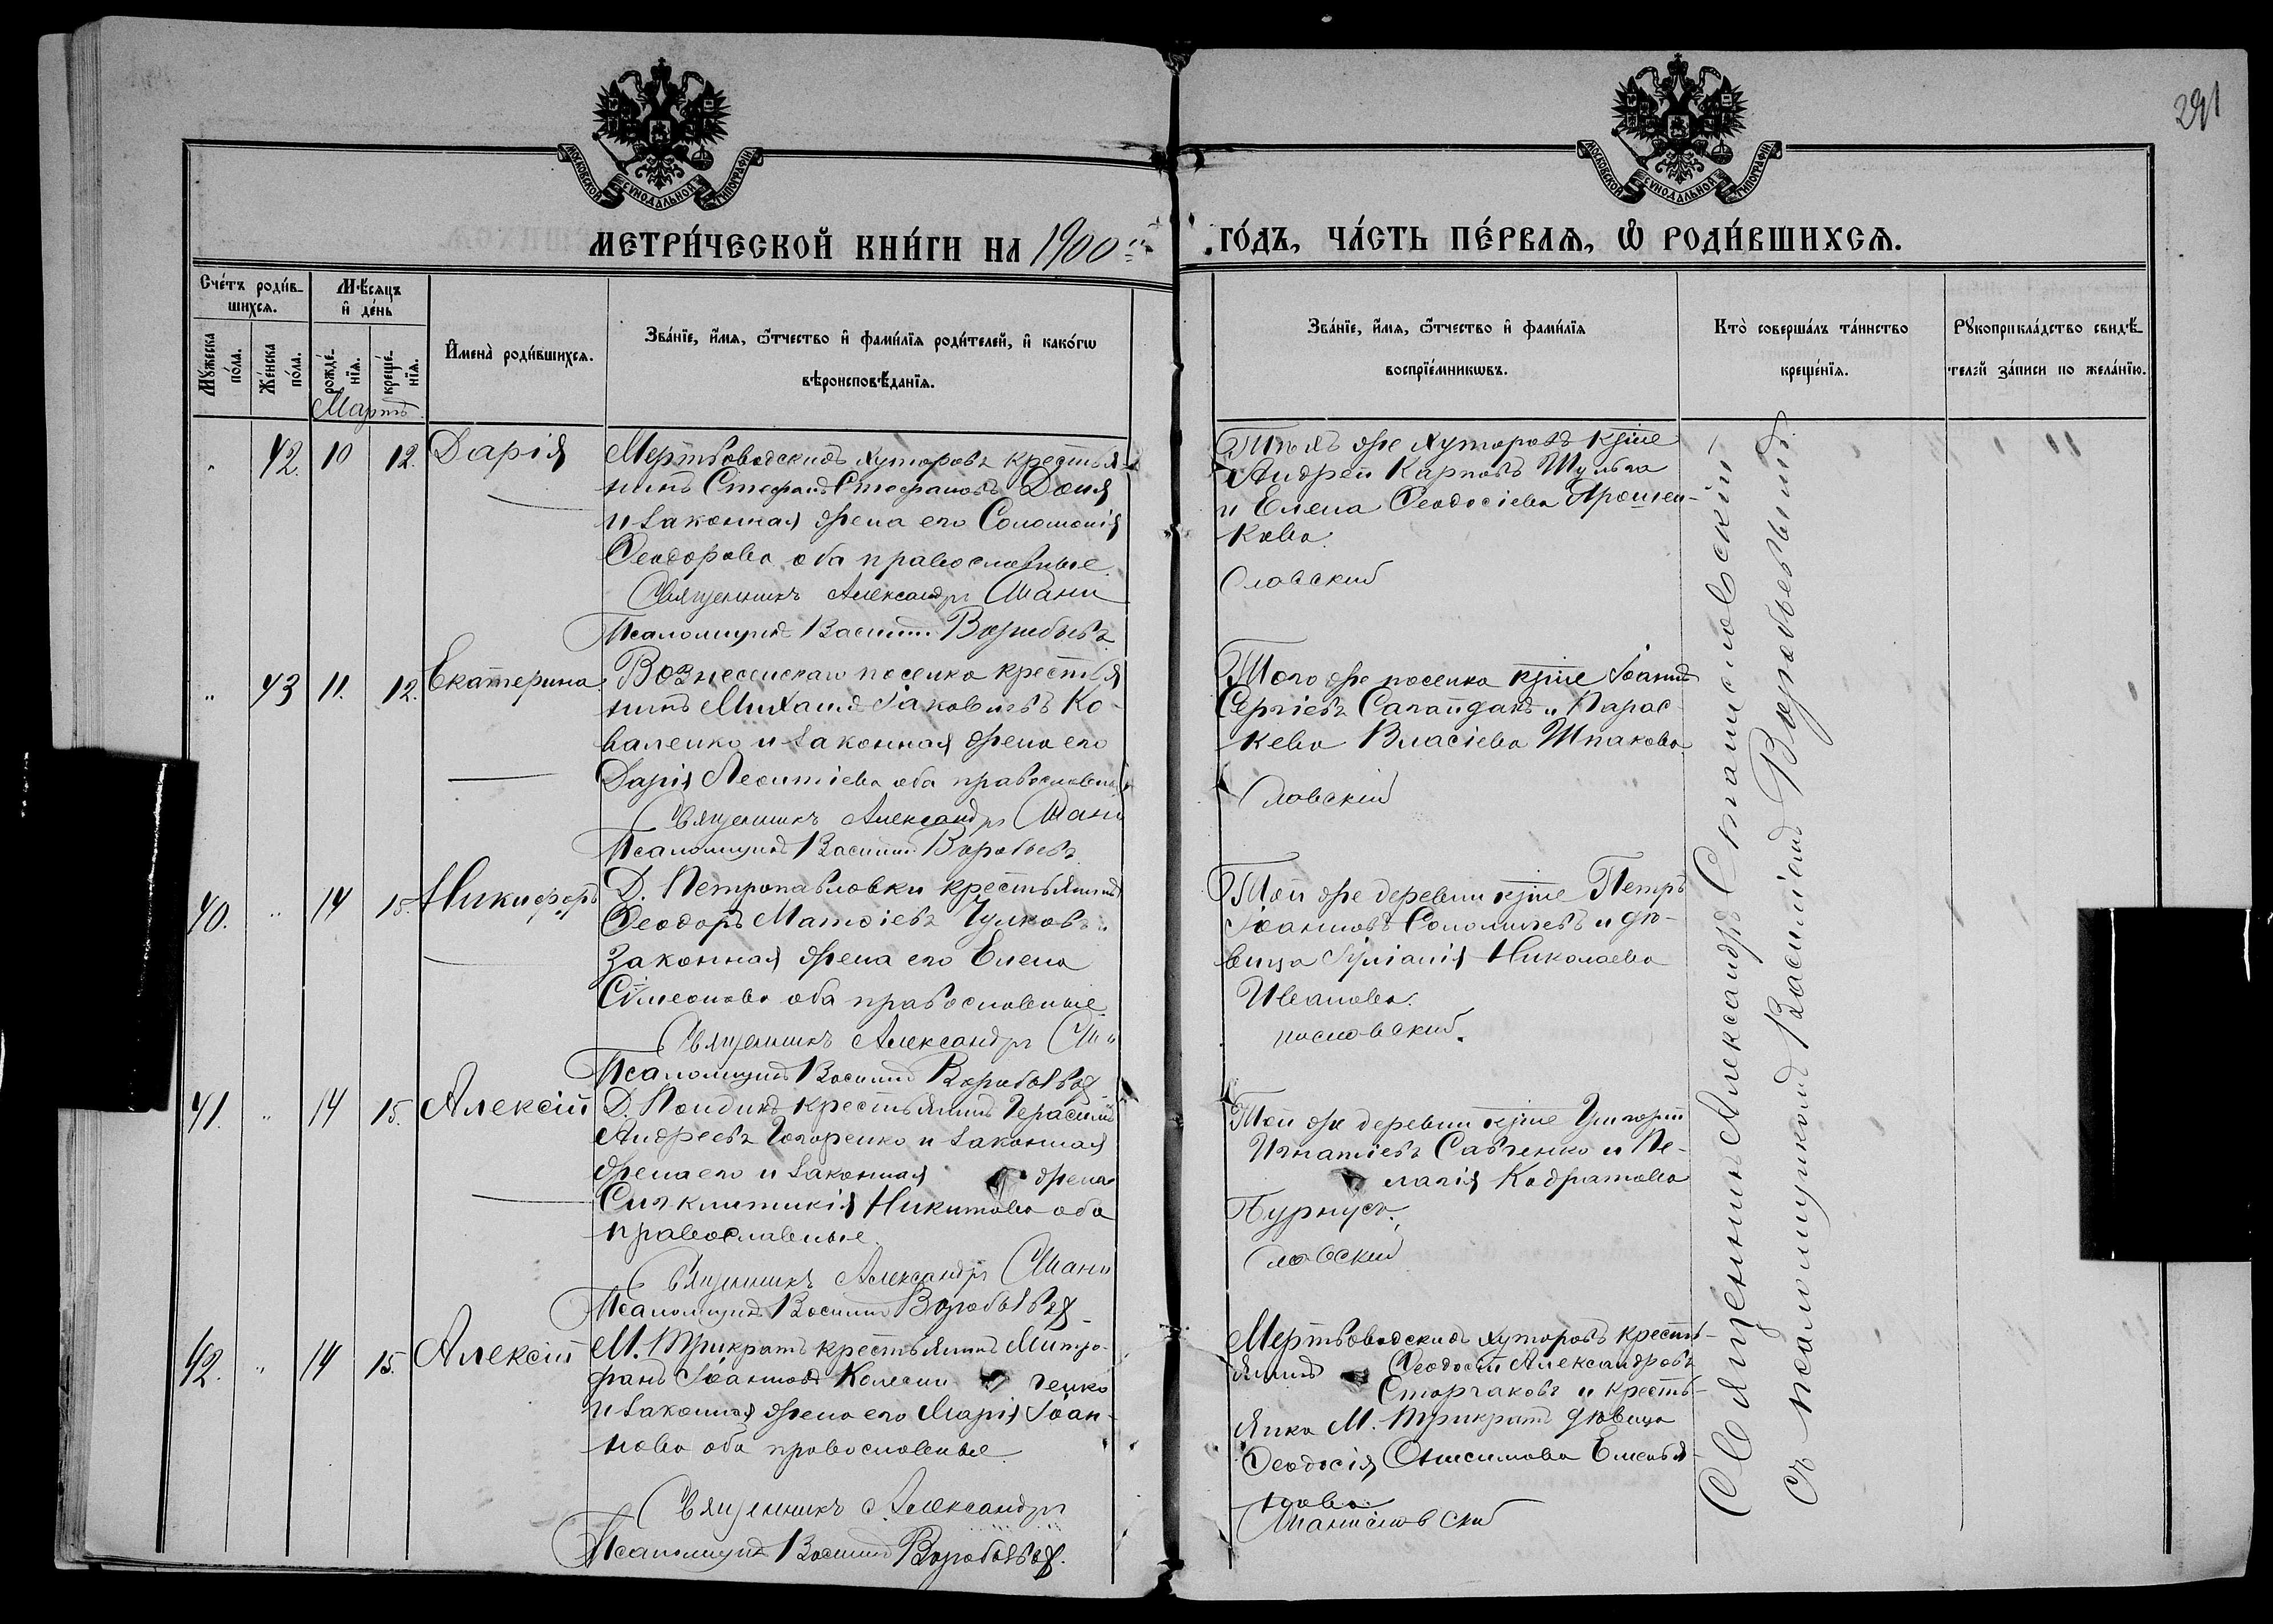 291
МОСКОВСКОЙ СУНОДАЛЬНОЙ ТИПОГРАФІИ
МОСКОВСКОЙ СУНОДАЛЬНОЙ ТИПОГРАФІИ
МЕТРИ́ЧЕСКОЙ КНИ́ГИ НА 1900
ГО́ДЪ, ЧА́СТЬ ПЕ́РВАѦ, Ѡ҆ РОДИ́ВШИХСѦ.
Сче́тъ роди́в-
шихсѧ.
Мꙋ́жеска по́ла.
Же́нска по́ла.
Мѣ́сѧцъ
и҆ де́нь
рожде́-
нїѧ.
креще́-
нїѧ.
И҆мена̀ роди́вшихсѧ.
Зва́нїе, и҆́мѧ, ѻ҆́тчество и҆ фами́лїѧ роди́телей, и҆ како́гѡ
вѣроисповѣ́данїѧ.
Зва́нїе, и҆́мѧ, ѻ҆́тчество и҆ фами́лїѧ
воспрїе́мникѡвъ.
Кто̀ соверша́лъ та́инство
креще́нїѧ.
Рꙋкоприкла́дство свидѣ́-
телей за́писи по жела́нїю.
Мартъ
42. 10 12. Дарія
Мертвоводскихъ хуторовъ крестья-
нинъ Стефанъ Стефановъ Доня
и законная жена его Соломонія
Ѳеодорова оба православные.
Священникъ Александръ Стани
Псаломщикъ Василій Воробьевъ
Тѣхъ же хуторовъ кр̃не
Андрей Карповъ Шульга
и Елена Ѳеодосіева Ярошен-
кова.
славский
43 11. 12. Екатерина.
Вознесенскаго поселка крестья
нинъ Михаилъ Іаковлевъ Ко-
валенко и законная жена его
Дарія Леонтіева оба православные
Священникъ Александръ Стани
Псаломщикъ Василій Воробьевъ
Того же поселка кр̃не Іоаннъ
Сергіевъ Сагайдакъ и Парас-
кева Власіева Шпакова
славский
40. 14 15. Никифоръ
Д. Петропавловки крестьянинъ
Ѳеодоръ Матѳіевъ Чулковъ и
законная жена его Елена
Сѵмеонова оба православные
Священникъ Александръ Ста
Псаломщикъ Василій Воробьевъ
Той же деревни кр̃не Петръ
Іоанновъ и дѣ-
вица Іуліанія Николаева
Иванова.
ниславский.
41. 14 15. Алексій
Д. крестьянинъ Герасимъ
Андреевъ Гогоренко и законная
жена его и законная жена
Синклитикія Никитова оба
православные.
Священникъ Александръ Стани
Псаломщикъ Василій Воробьевъ
Той же деревни кр̃не Григорій
Игнатіевъ Савченко и Пе-
лагія Кодратова
Бурнусъ.
славский
42. 14 15. Алексій
М. Трикратъ крестьянинъ Митро-
фанъ Іоанновъ Колесни ченко
и законная жена его Марія Іоан-
нова оба православные.
Священникъ Александръ
Псаломщикъ Василій Воробьевъ.
Мертвоводскихъ хуторовъ кресть-
янинъ Ѳеодосій Александровъ
Сторчаковъ и кресть-
янка М. Трикратъ дѣвица
Ѳеодосія Онисимова Емелья-
нова.
Станиславский
Священникъ Александръ Станиславскій
съ псаломщикомъ Василіемъ Воробьевымъ.